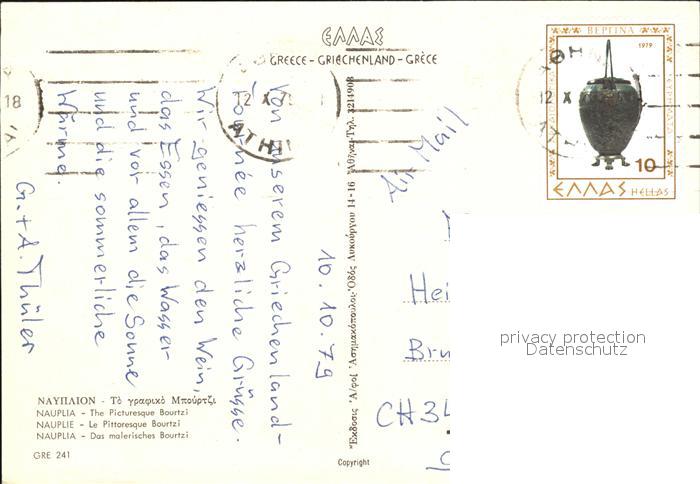 ΕΛΛΑΣ
GREECE - GRIECHENLAND - GRÈCE
ΒΕΡΓΙΝΑ
1979
10
ΕΛΛΑΣ HELLAS
18
12 X
ΑΘΗ
12 X 7
ΑΤΗ
Air Mail
10. 10. 79
Von unserem Griechenland-
Tournée herzliche Grüsse.
Wir geniessen den Wein,
das Essen, das Wasser
und vor allem die Sonne
und die sommerliche
Wärme.
G. + A. Thüler
Hei
Bru
CH34
privacy protection
Datenschutz
Ἔκδοσις Ἀ/φοί Ἀσημακόπουλοι·Ὁδὸς Λυκούργου 14-16 Ἀθῆναι-Τηλ. 3214908
ΝΑΥΠΛΙΟΝ - Τὸ γραφικὸ Μπούρτζι
NAUPLIA - The Picturesque Bourtzi
NAUPLIE - Le Pittoresque Bourtzi
NAUPLIA - Das malerisches Bourtzi
GRE 241
Copyright